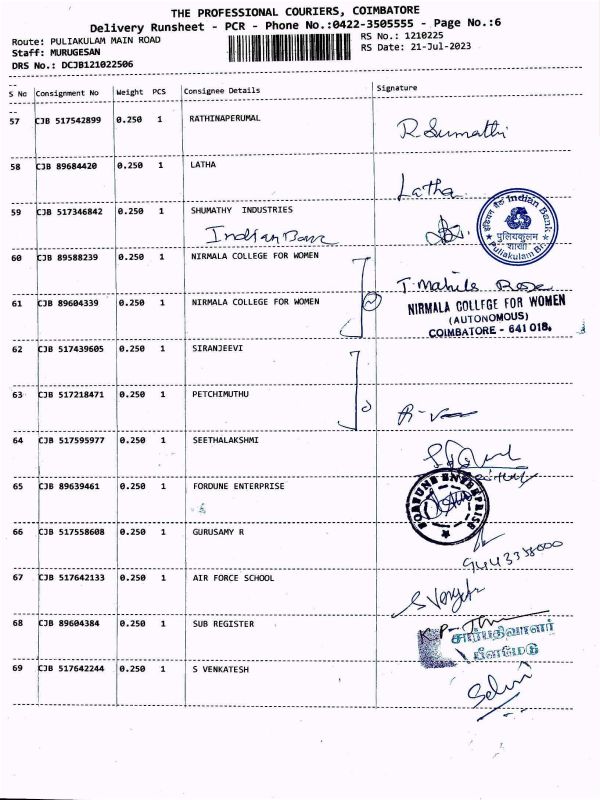 THE PROFESSIONAL COURIERS, COIMBATORE
Delivery Runsheet - PCR - Phone No.:0422-3505555 - Page No.:6
Route: PULIAKULAM MAIN ROAD
RS No.: 1210225
Staff: MURUGESAN
RS Date: 21-Jul-2023
DRS No.: DCJB121022506
S No Consignment No Weight PCS Consignee Details Signature
57 CJB 517542899 0.250 1 RATHINAPERUMAL
R. Sumathi
58 CJB 89684420 0.250 1 LATHA
Latha
59 CJB 517346842 0.250 1 SHUMATHY INDUSTRIES
Indian Bank
इंडियन बैंक Indian Bank
புலியகுளம்
शाखा
Puliakulam Br.
60 CJB 89588239 0.250 1 NIRMALA COLLEGE FOR WOMEN
61 CJB 89604339 0.250 1 NIRMALA COLLEGE FOR WOMEN
NIRMALA COLLEGE FOR WOMEN
(AUTONOMOUS)
COIMBATORE - 641 018.
62 CJB 517439605 0.250 1 SIRANJEEVI
63 CJB 517218471 0.250 1 PETCHIMUTHU
64 CJB 517595977 0.250 1 SEETHALAKSHMI
65 CJB 89639461 0.250 1 FORDUNE ENTERPRISE
FORTUNE ENTERPRISE
66 CJB 517558608 0.250 1 GURUSAMY R
67 CJB 517642133 0.250 1 AIR FORCE SCHOOL
68 CJB 89604384 0.250 1 SUB REGISTER
சார்பதிவாளர்
பீளமேடு
69 CJB 517642244 0.250 1 S VENKATESH
Selvi